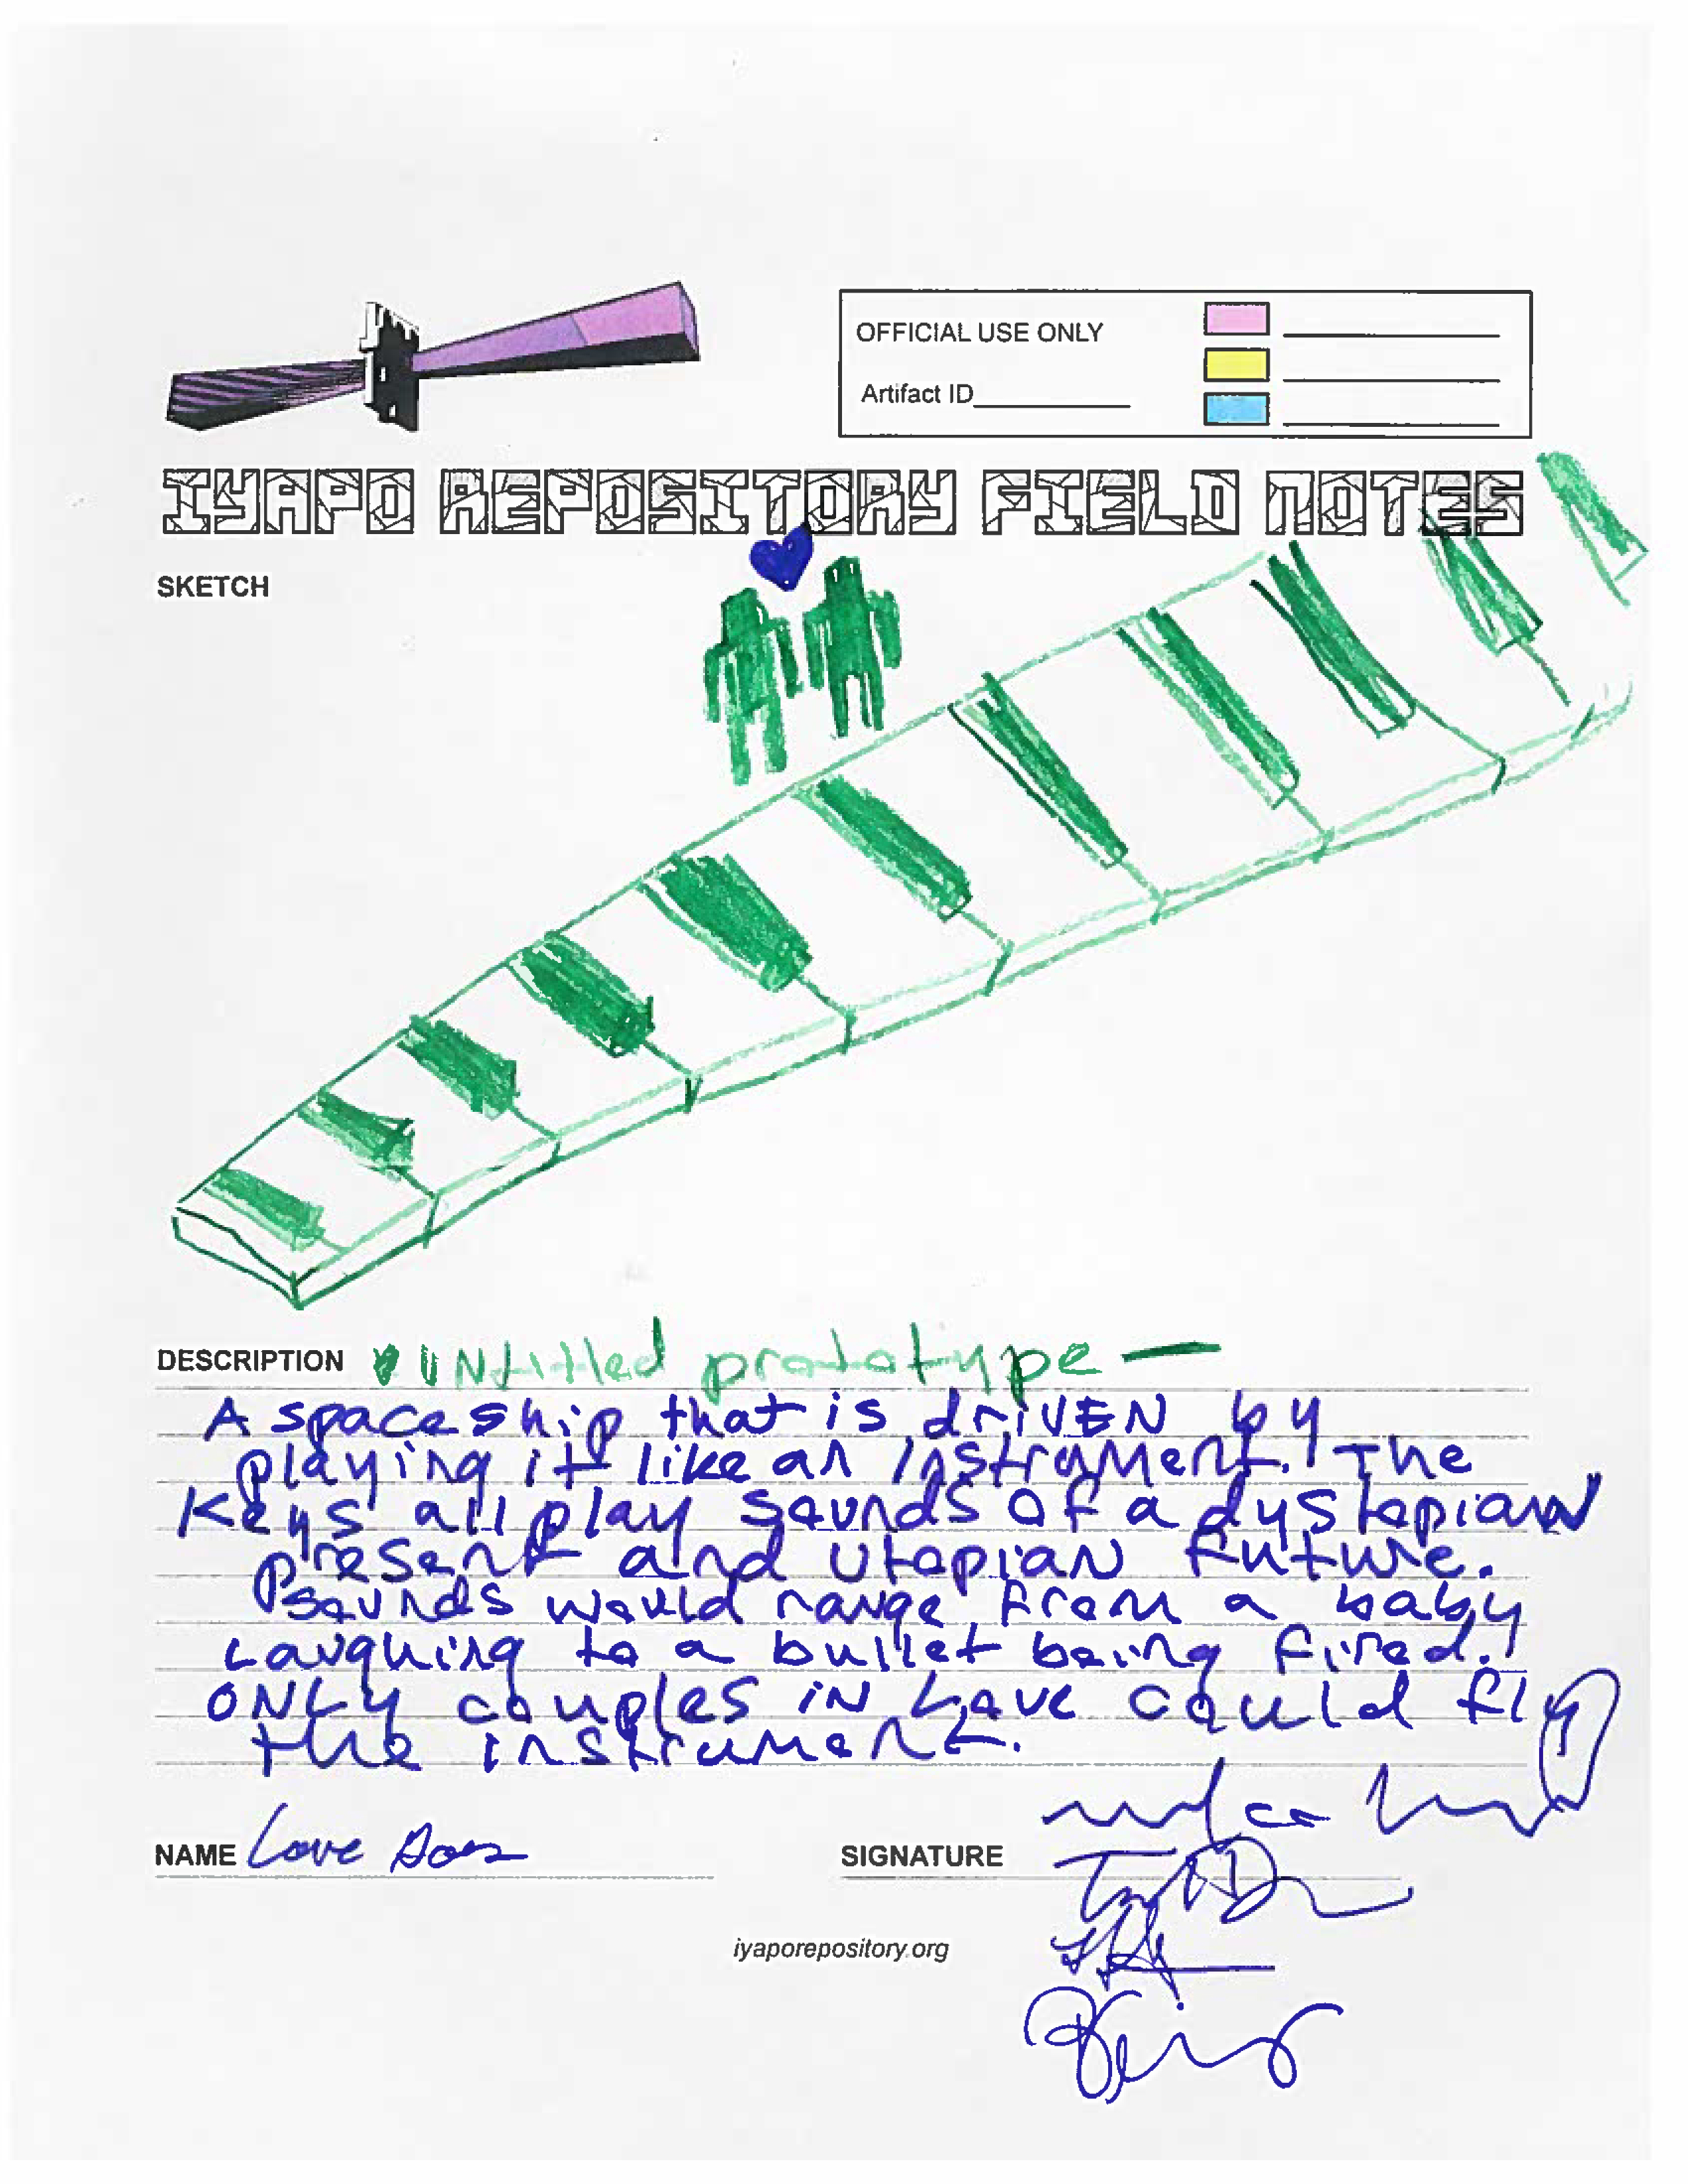 OFFICIAL USE ONLY
Artifact ID
IYAPO REPOSITORY FIELD NOTES
SKETCH
DESCRIPTION UNtitled prototype —
A spaceship that is driVEN by
playing it like an instrument. The
Keys all play sounds of a dystopian
present and utopian future.
Sounds would range from a baby
Laughing to a bullet being fired.
ONLY couples iN Love could fly
the instrument.
NAME Love
SIGNATURE
iyaporepository.org